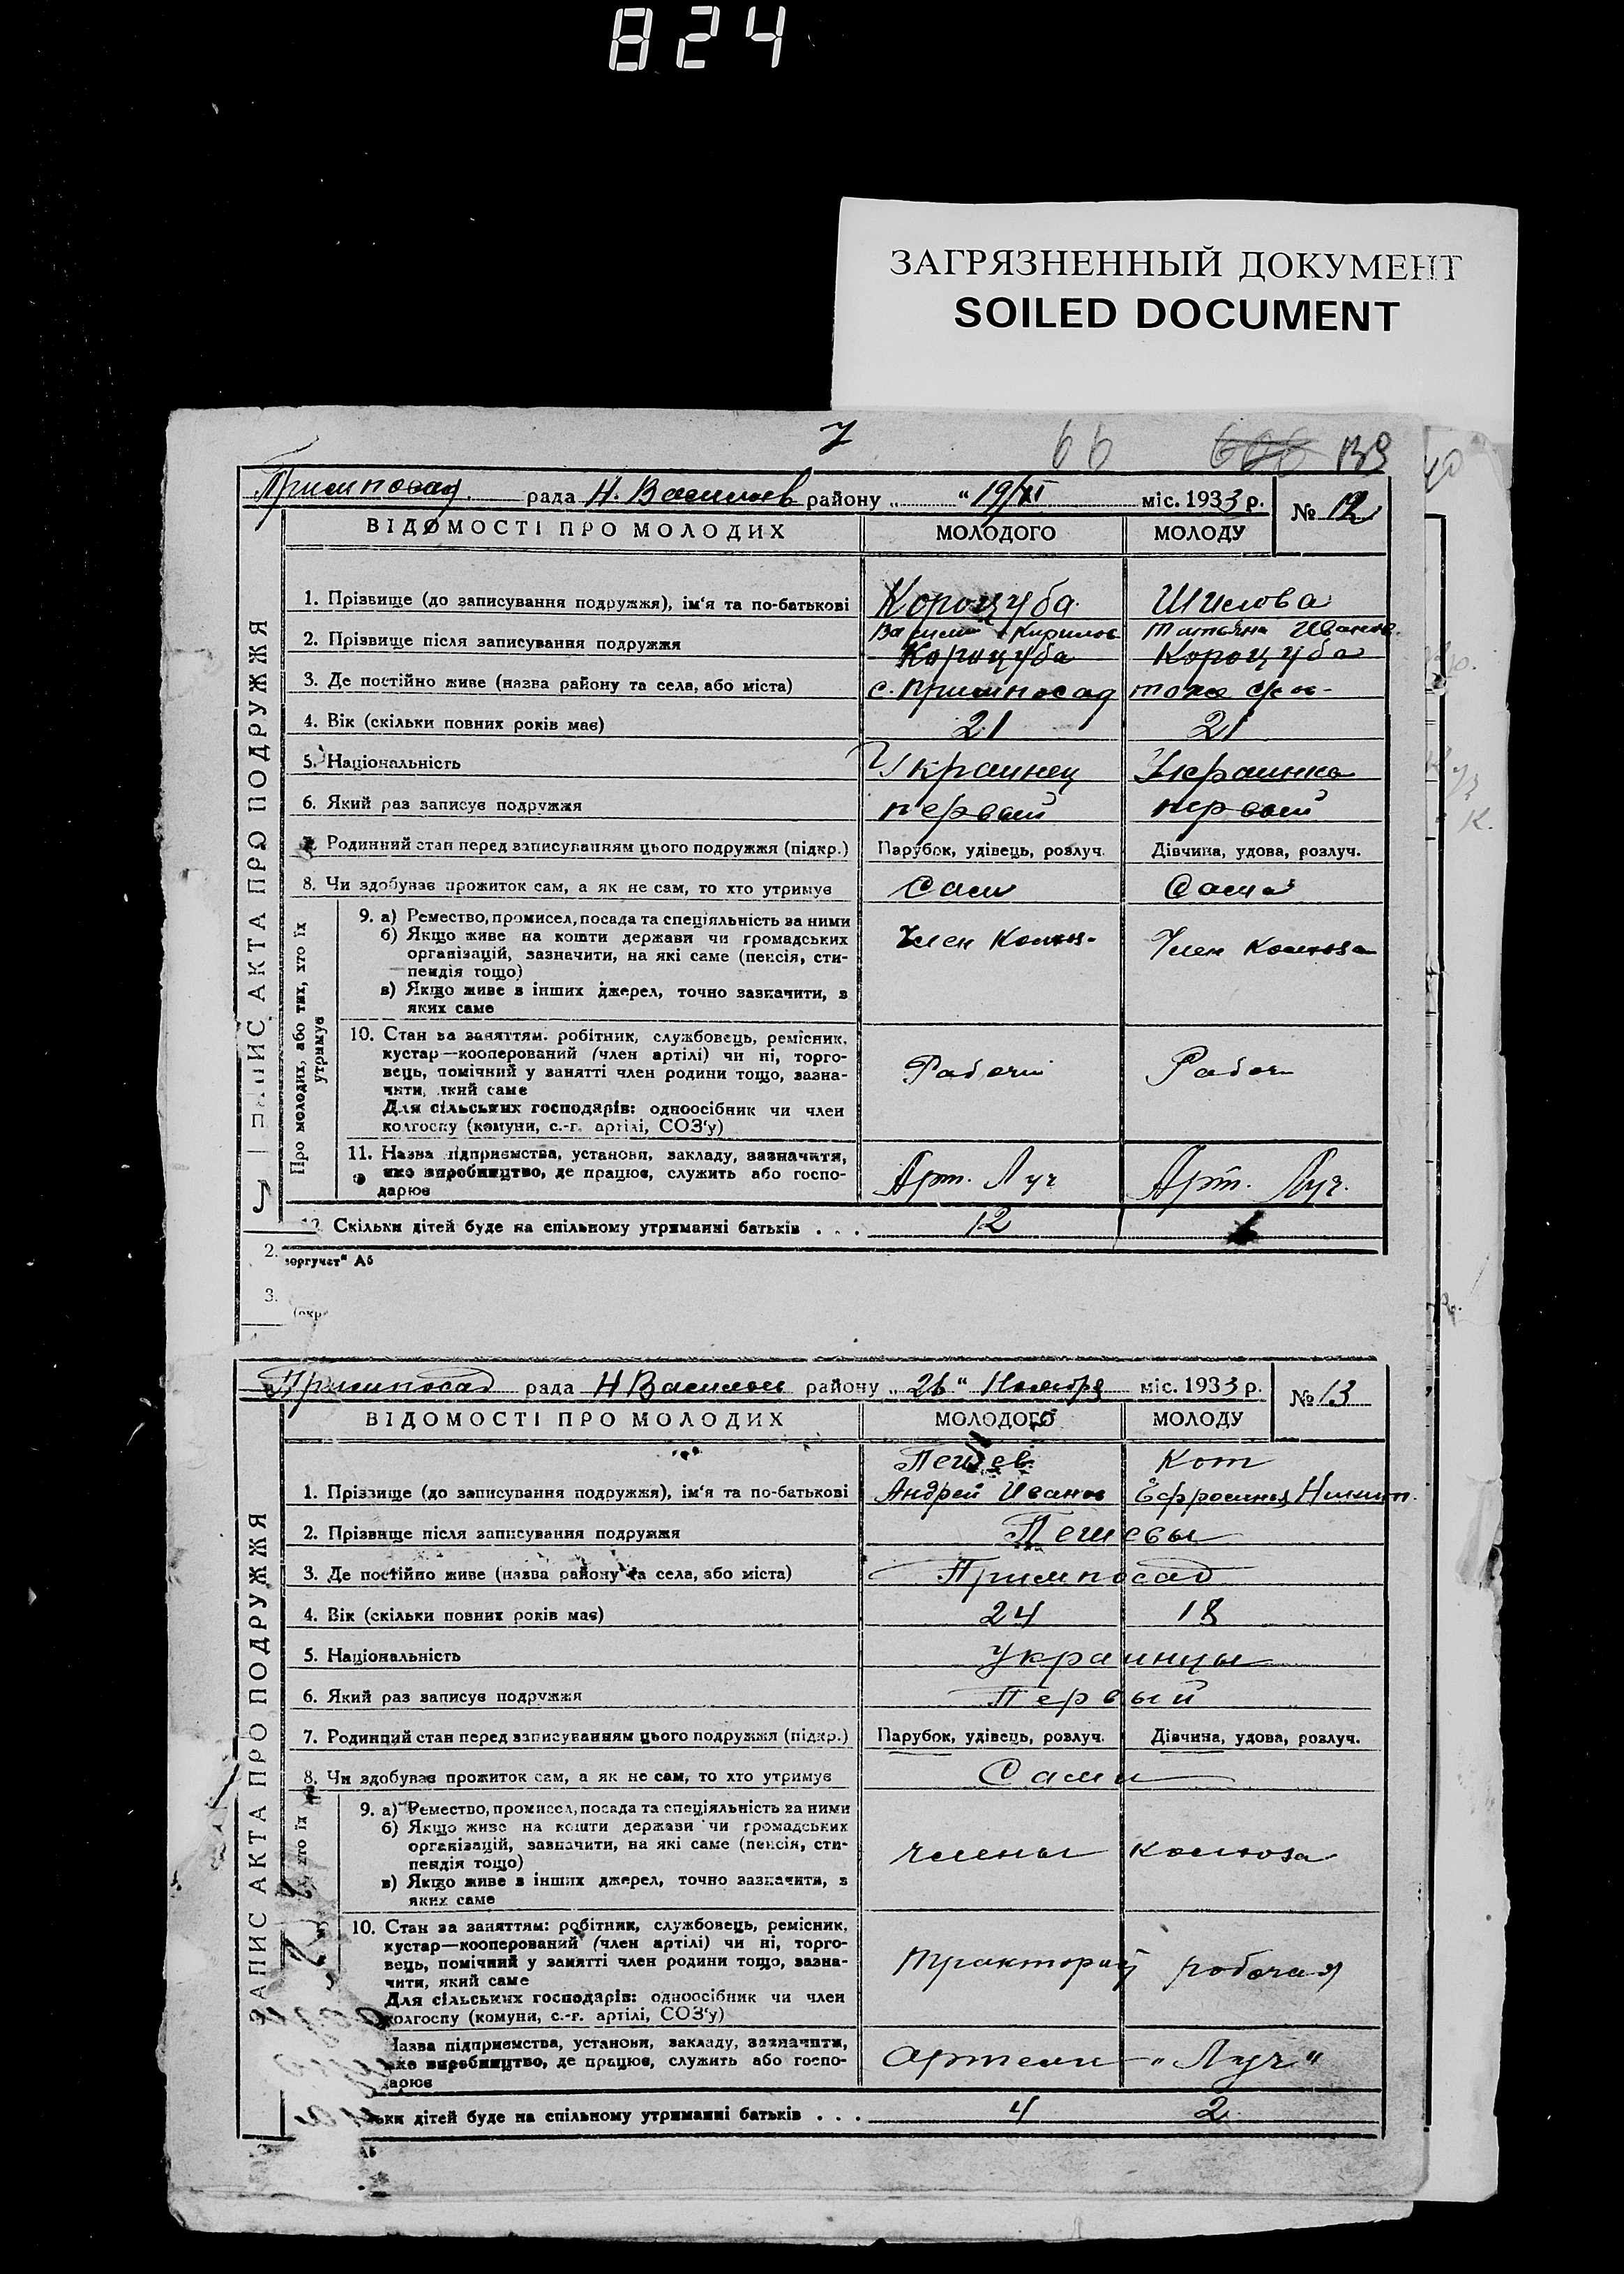 824
ЗАГРЯЗНЕННЫЙ ДОКУМЕНТ
SOILED DOCUMENT
7 66 133
Примпосад рада Н. Васильев району „ “ 19/XI міс. 1933 р. № 12
ВІДОМОСТІ ПРО МОЛОДИХ МОЛОДОГО МОЛОДУ
ЗАПИС АКТА ПРО ПОДРУЖЖЯ
1. Прізвище (до записування подружжя), ім'я та по-батькові Короцуба Шилова
Василий Кирилов Татьяна Иванов.
2. Прізвище після записування подружжя Короцуба Короцуба
3. Де постійно живе (назва району та села, або міста) с. Примпосад тоже
4. Вік (скільки повних років має) 21 21
5. Національність Украинец Украинка
6. Який раз записує подружжя первый первый
7. Родинний стан перед записуванням цього подружжя (підкр.) Парубок, удівець, розлуч. Дівчина, удова, розлуч.
8. Чи здобував прожиток сам, а як не сам, то хто утримує Сам Сама
Про молодих, або тих, хто їх утримує
9. а) Ремество, промисел, посада та спеціяльність за ними
б) Якщо живе на кошти держави чи громадських
організацій, зазначити, на які саме (пенсія, сти-
пендія тощо)
в) Якщо живе з інших джерел, точно зазначити, з
яких саме
Член Колхоз- Член Колхоза
10. Стан за заняттям: робітник, службовець, ремісник,
кустар—кооперований (член артілі) чи ні, торго-
вець, помічний у занятті член родини тощо, зазна-
чити, який саме
Для сільських господарів: одноосібник чи член
колгоспу (комуни, с.-г. артілі, СОЗ'у)
Рабочий Рабоч
11. Назва підприємства, установи, закладу, зазначити,
яке виробництво, де працює, служить або госпо-
дарює
Арт. Луч Арт. Луч.
12. Скільки дітей буде на спільному утриманні батьків . . . 12
2. воргучет" Аб
3.
(окр
Примпосад рада Н Васильев району „ 26 “ Ноября міс. 1933 р. № 13
ВІДОМОСТІ ПРО МОЛОДИХ МОЛОДОГО МОЛОДУ
ЗАПИС АКТА ПРО ПОДРУЖЖЯ
Пешев Кот
1. Прізвище (до записування подружжя), ім'я та по-батькові Андрей Иванов Ефросинья
2. Прізвище після записування подружжя Пешевы
3. Де постійно живе (назва району та села, або міста) Примпосад
4. Вік (скільки повних років має) 24 18
5. Національність украинцы
6. Який раз записує подружжя Первый
7. Родинний стан перед записуванням цього подружжя (підкр.) Парубок, удівець, розлуч. Дівчина, удова, розлуч.
8. Чи здобував прожиток сам, а як не сам, то хто утримує Сами
хто їх
9. а) Ремество, промисел, посада та спеціяльність за ними
б) Якщо живе на кошти держави чи громадських
організацій, зазначити, на які саме (пенсія, сти-
пендія тощо)
в) Якщо живе з інших джерел, точно зазначити, з
яких саме
члены колхоза
10. Стан за заняттям: робітник, службовець, ремісник,
кустар—кооперований (член артілі) чи ні, торго-
вець, помічний у занятті член родини тощо, зазна-
чити, який саме
Для сільських господарів: одноосібник чи член
колгоспу (комуни, с.-г. артілі, СОЗ'у)
робочая
Назва підприємства, установи, закладу, зазначити,
яке виробництво, де працює, служить або госпо-
дарює
артели „Луч"
ьки дітей буде на спільному утриманні батьків . . . 4 2
Аб